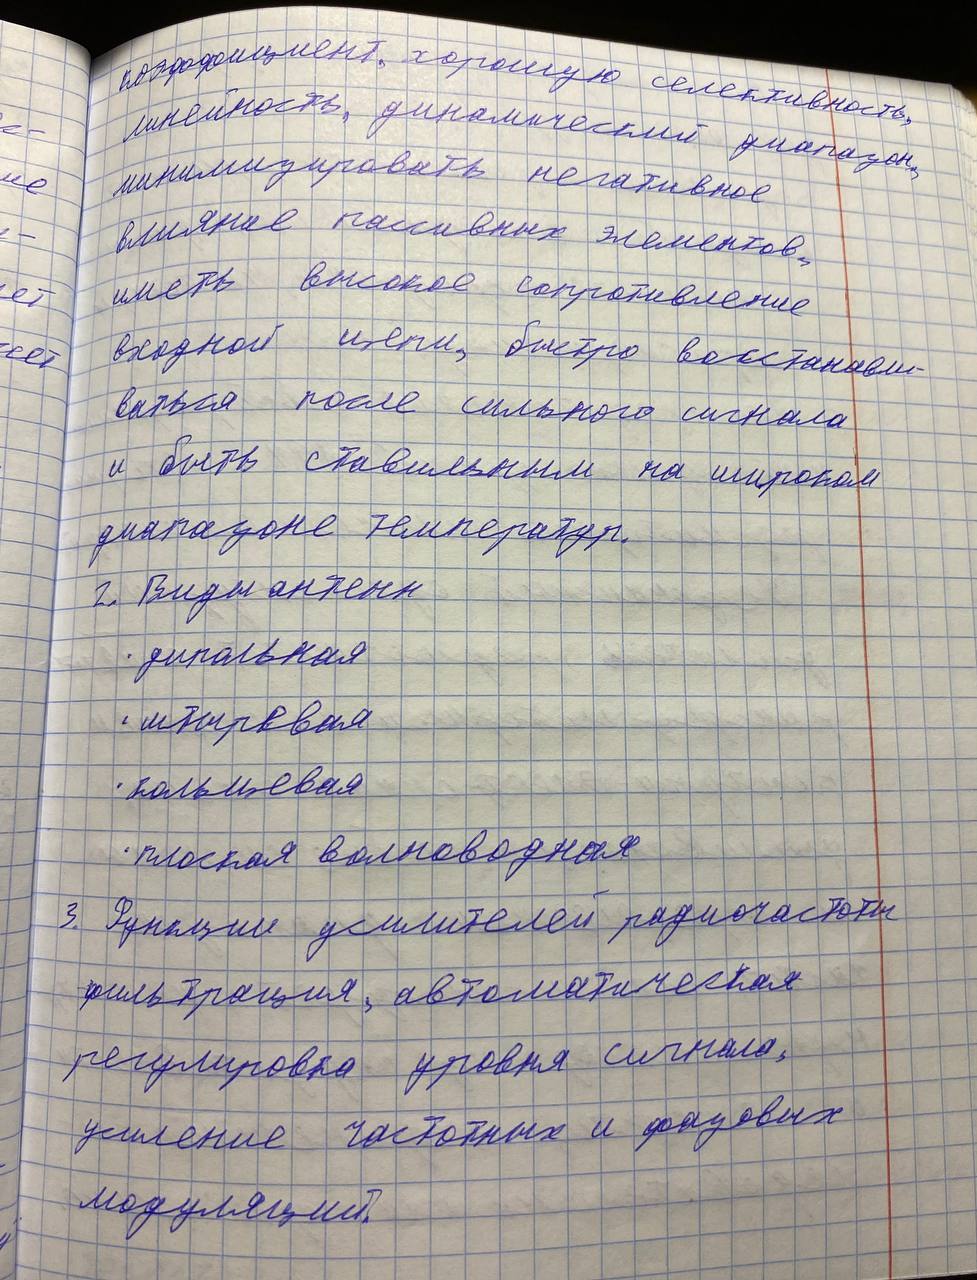 коэффициент, хорошую селективность,
линейность, динамический диапазон,
минимизировать негативное
влияние пассивных элементов,
иметь высокое сопротивление
входной цепи, быстро восстанавли-
ваться после сильного сигнала
и быть ставильным на широком
диапазоне температур.
2. Виды антенн
· дипольная
· штырвая
· кольцевая
· плоская волноводная
3. Функции усилителей радиочастоты
фильтрация, автоматическая
регулировка уровня сигнала,
усиление частотных и фазовых
модуляций.